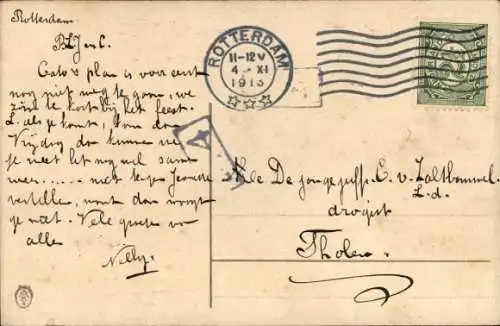 Rotterdam.
P.L. J en C.
Cato's plan is voor eerst
nog niet weg te gaan, we
zijn te kort bij het feest.
L. als je komt, kom dan
Vrijdag dan kunnen we
je niet
niet tegen Jeanette
vertellen, want dan
je niet. Vele groeten voor
allen
Nelly.
ROTTERDAM
11-12V
4 XI
1913
De jongejuffr. C. v. Zaltbommel
L.d.
drogist
Tholen.